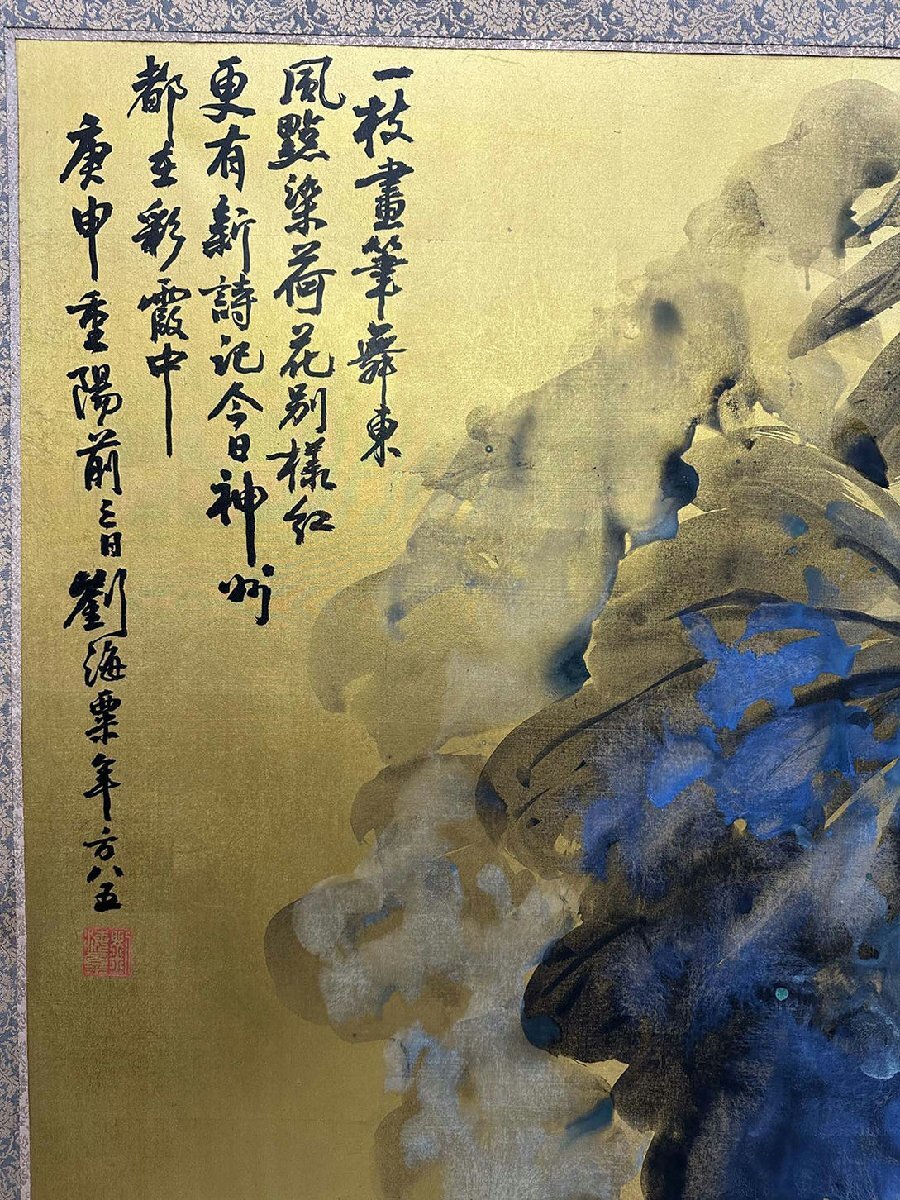 一枝畫筆舞東
風點染荷花別樣紅
更有新詩記今日神州
都在彩霞中
庚申重陽前三日劉海粟年方八五